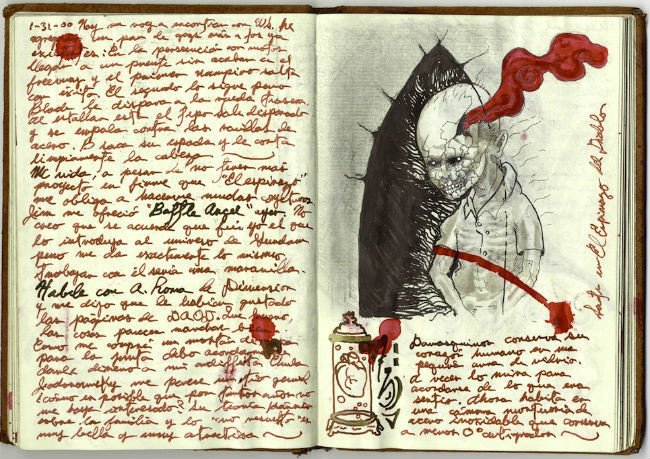 1-31-00 Hoy me voy a encontrar con W.S. he
agregado un par de gags más a los ya
existentes: En la persecución con motos
llegan a un puente sin acabar en el
freeway y el primer vampiro salta
con éxito. El segundo lo sigue pero
Blade le dispara a la rueda trasera.
Al estallar esta el tipo sale disparado
y se empala contra las varillas de
acero. B saca su espada y le corta
limpiamente la cabeza
Mi vida, a pesar de no tener más
proyecto en firme que "El espinazo"
me obliga a hacerme muchas
Jim me ofreció "Battle Angel" ayer. No
creo que se acuerde que fui yo el que
lo introdujo al universo de Gunnm
pero me da exactamente lo mismo,
trabajar con él sería una maravilla.
Hablé con A. Rona de Dimension
y me dijo que le habían gustado
las páginas de D.A.O.T. que bueno,
las cosas parecen marchar bien.
para la junta debo
dinero a mi
Jodorowsky me parece un tío genial
¿cómo es posible que por tantos años no
me haya interesado? Su teoría
sobre la familia y lo "no resuelto" es
muy bella y muy atractiva
Santi en El Espinazo del Diablo
Damaskinos conserva su
corazón humano en una
pequeña urna de vidrio.
A veces lo mira para
acordarse de lo que era
sentir. Ahora habita en
una cámara mortuoria de
acero inoxidable que conserva
a menos 0° centígrados